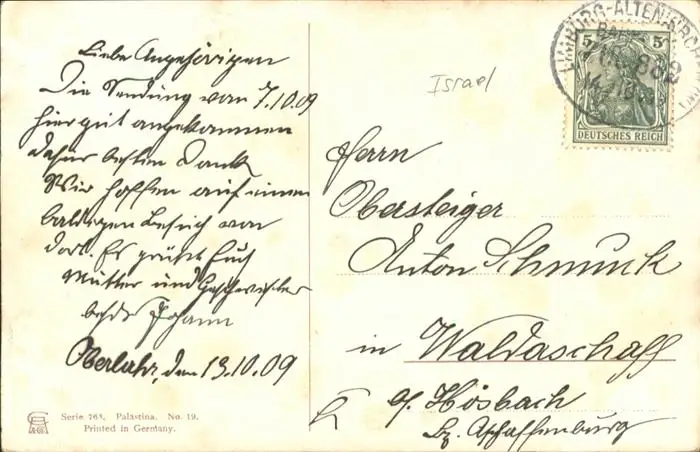 Liebe Angehörigen
Die Sendung vom 7.10.09
hier gut angekommen
daher besten Dank
Wir hoffen auf einen
baldigen Besuch von
dort. Es grüßt Euch
Mutter und Geschwister
Johann
Oberlahr, den 13.10.09
Serie 763, Palastina, No. 19.
Printed in Germany.
Israel
LIMBURG-ALTENKIRCHEN
BAHNPOST
5 5
DEUTSCHES REICH
Herrn
Obersteiger
Anton Schmuck
in Waldaschaff
Hösbach
Bz. Aschaffenburg